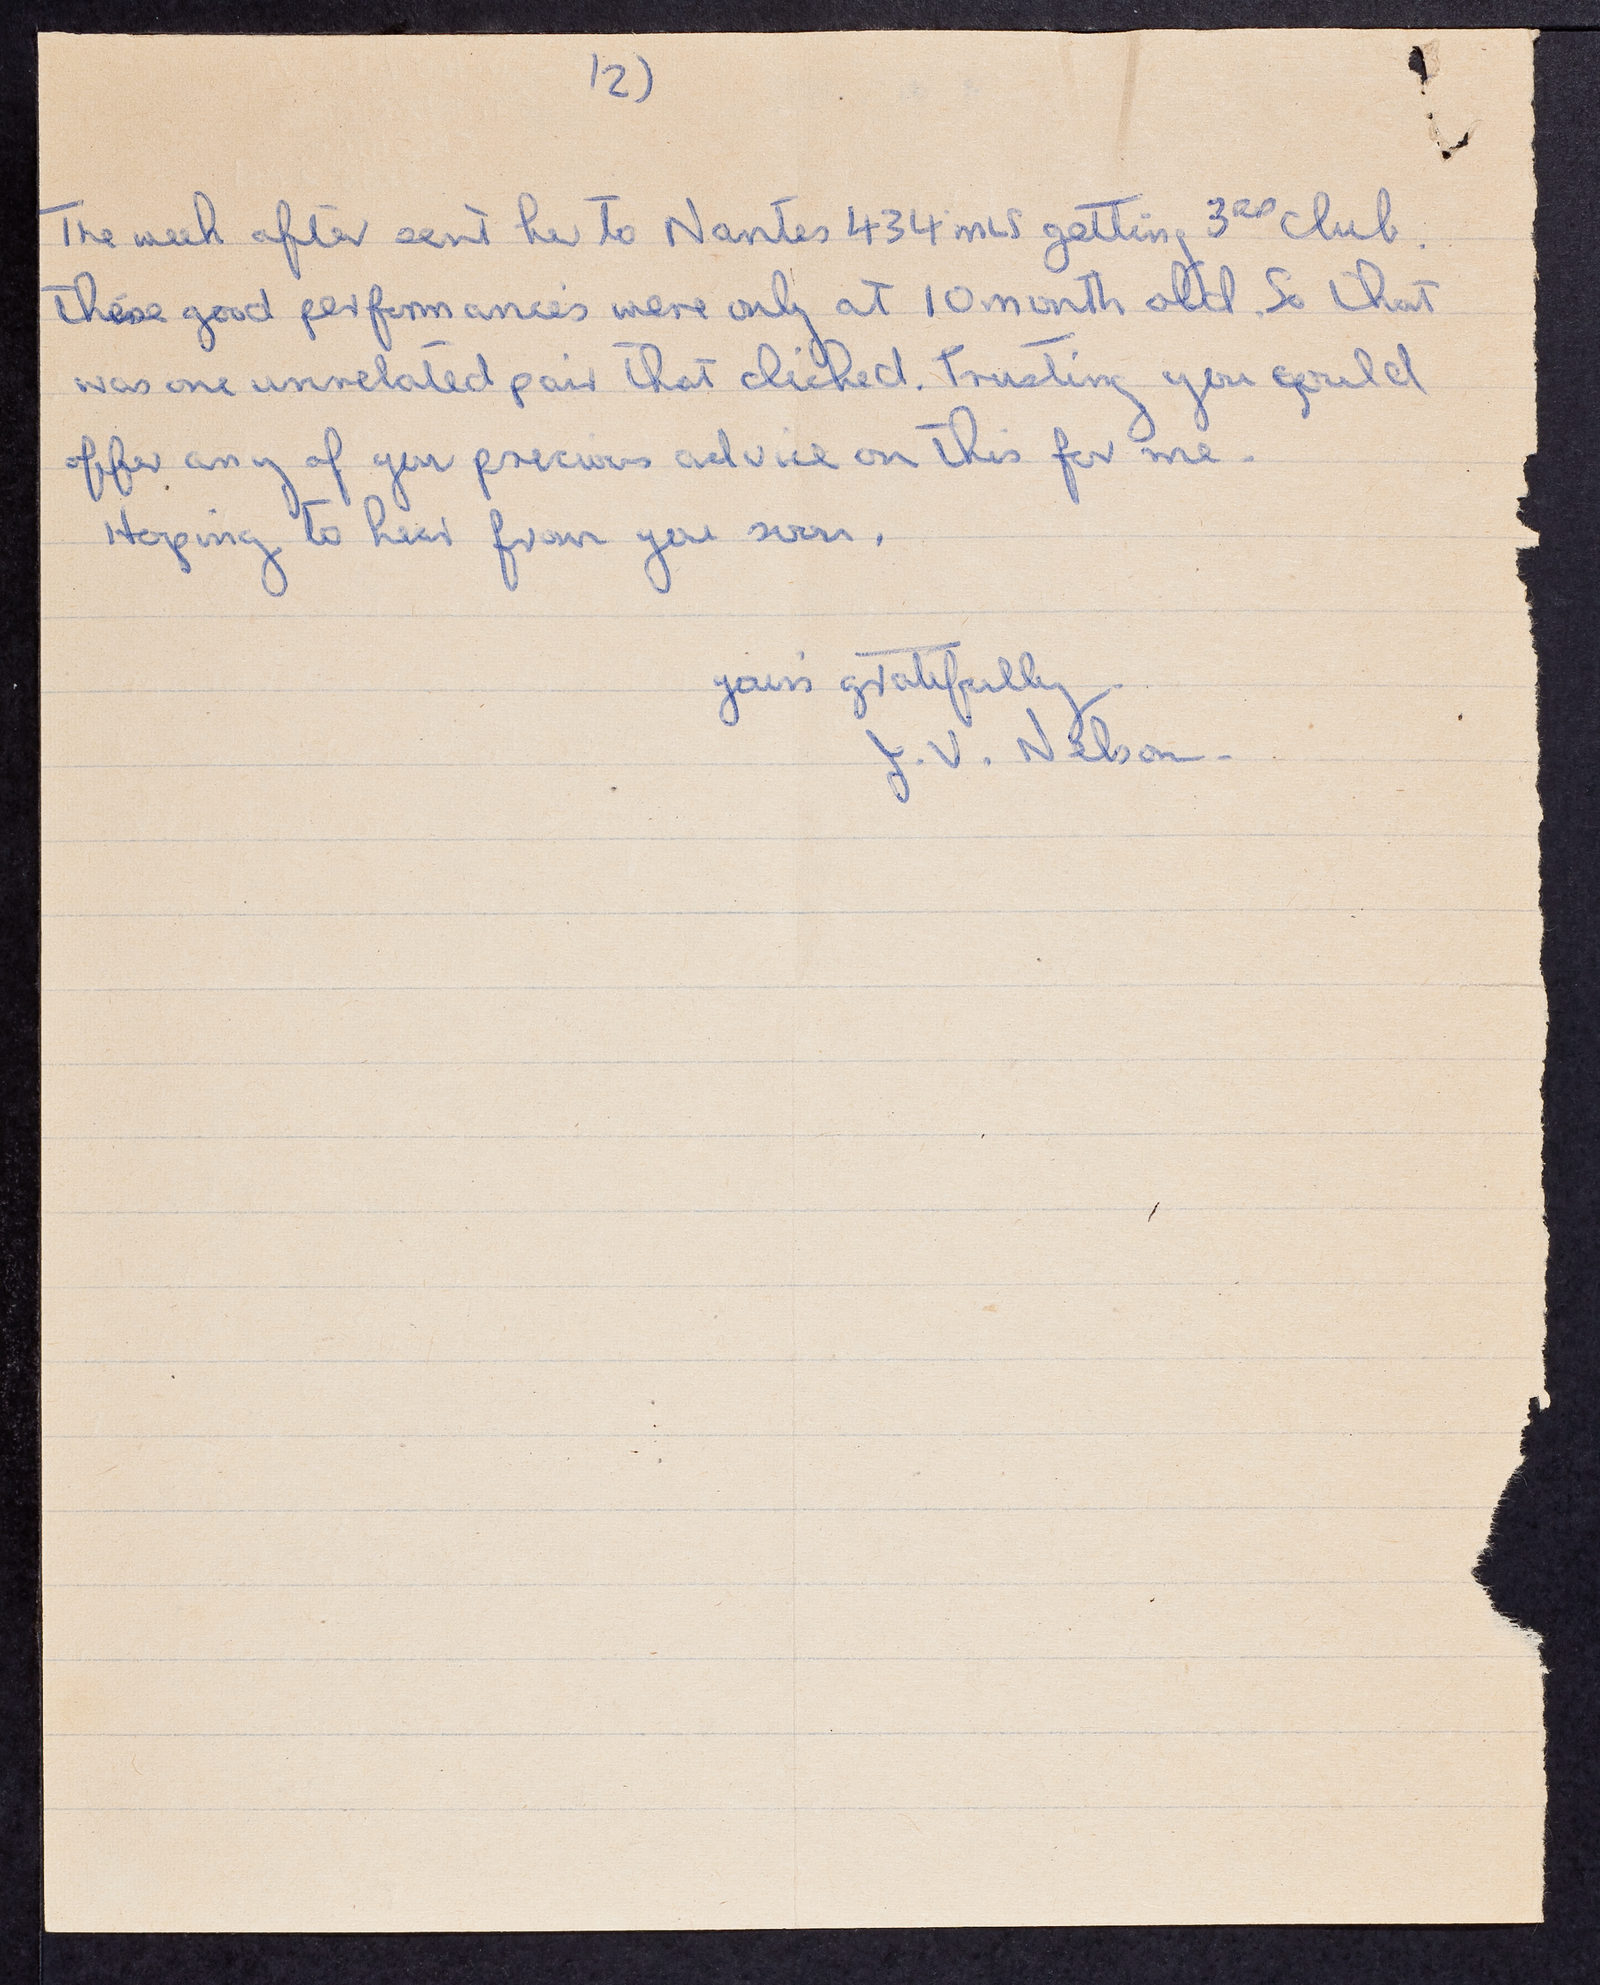 12)
The week after sent her to Nantes 434 mls getting 3RD club.
these good performances were only at 10 month old. So that
was one unrelated pair that cliched. Trusting you could
offer any of your precious advice on this for me.
Hoping to hear from you soon.
yours gratefully
J. V. Nelson.